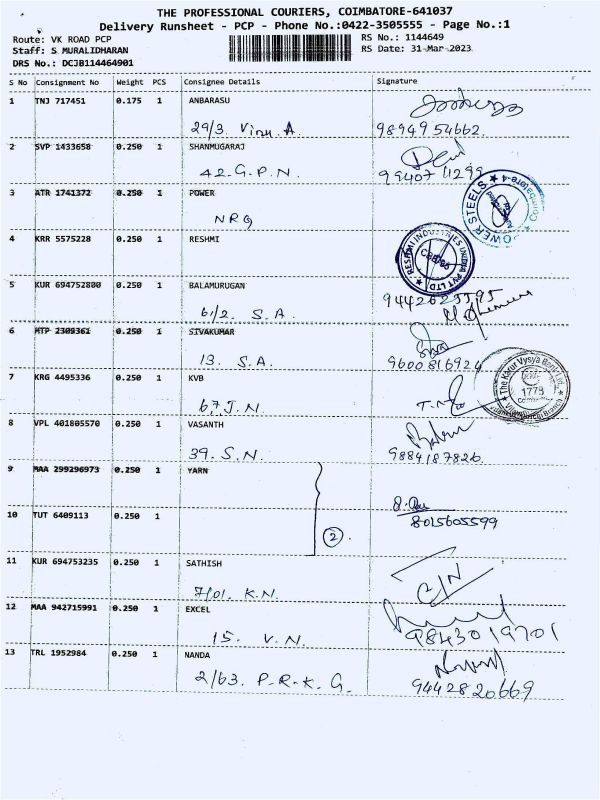 THE PROFESSIONAL COURIERS, COIMBATORE-641037
Delivery Runsheet - PCP - Phone No.:0422-3505555 - Page No.:1
Route: VK ROAD PCP RS No.: 1144649
Staff: S MURALIDHARAN RS Date: 31-Mar-2023
DRS No.: DCJB114464901
S No Consignment No Weight PCS Consignee Details Signature
1 TNJ 717451 0.175 1 ANBARASU
29/3. Vinu. A. 98949 54662.
2 SVP 1433658 0.250 1 SHANMUGARAJ
42. G. P. N. 99407 11299
3 ATR 1741372 0.250 1 POWER
NRG
POWER STEELS
4 KRR 5575228 0.250 1 RESHMI
RESHMI INDUSTRIES INDIA PVT LTD
5 KUR 694752800 0.250 1 BALAMURUGAN
61/2. S. A. 9442625595
6 MTP 2309361 0.250 1 SIVAKUMAR
13. S. A. 9600816924
7 KRG 4495336 0.250 1 KVB
67, J. N.
The Karur Vysya Bank Ltd.
1773
8 VPL 401805570 0.250 1 VASANTH
39. S. N. 9884187826.
9 MAA 299296973 0.250 1 YARN
10 TUT 6409113 0.250 1
8015605599
2
11 KUR 694753235 0.250 1 SATHISH
7/01. K. N.
12 MAA 942715991 0.250 1 EXCEL
15. V. N. 9843019701
13 TRL 1952984 0.250 1 NANDA
2/63. P. R. K. G. 9442820669